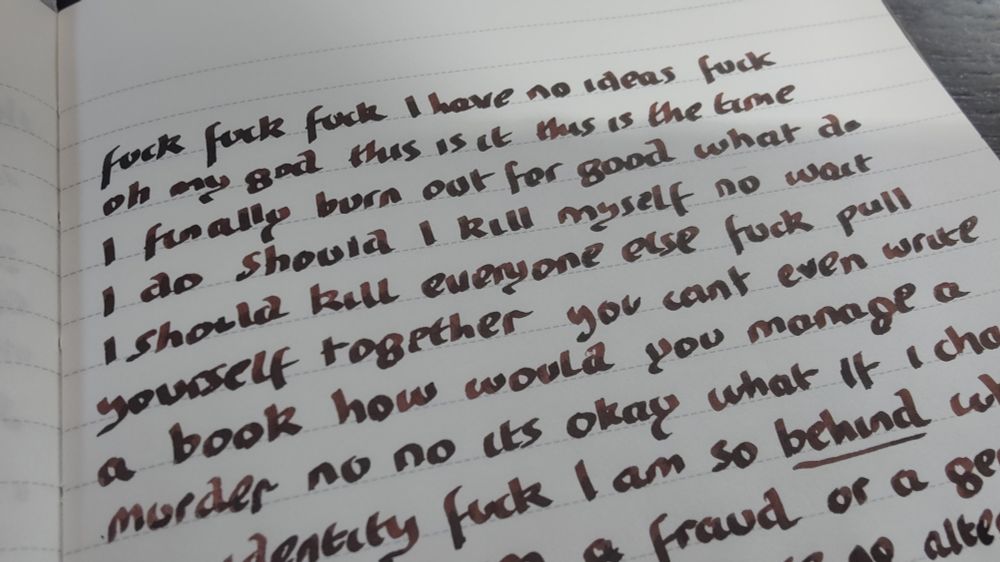 fuck fuck fuck I have no ideas fuck
oh my god this is it this is the time
I finally burn out for good what do
I do should I kill myself no wait
I should kill everyone else fuck pull
yourself together you cant even write
a book how would you manage a
murder no no its okay what if i cha
identity fuck I am so behind wh
a fraud or a ge
no alte